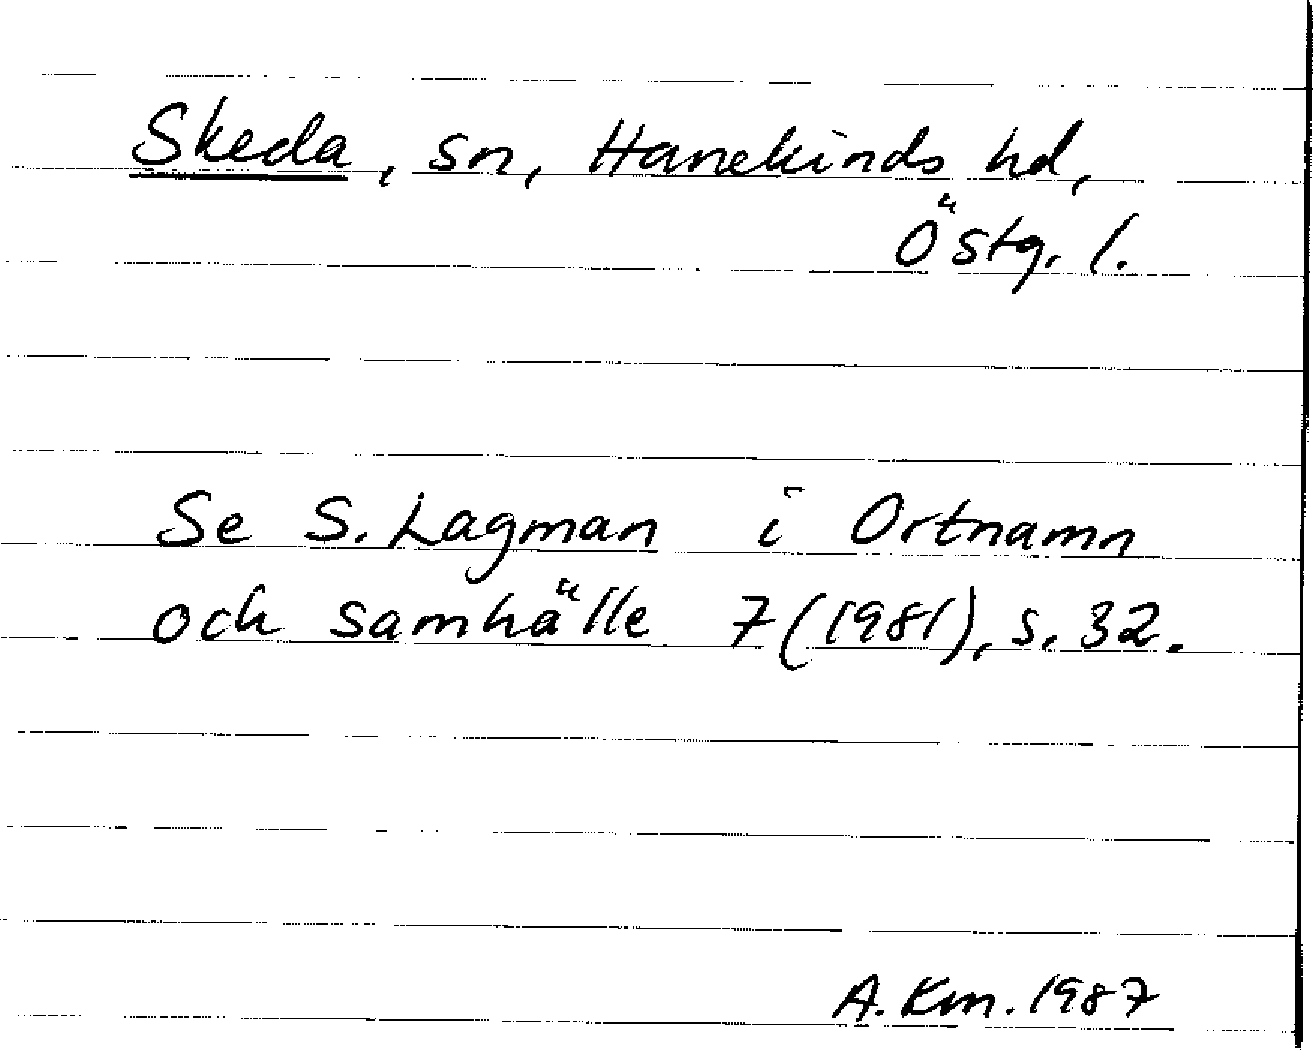 Skeda, sn, Hanekinds hd,
Östg. l.
Se S. Lagman i Ortnamn
och samhälle 7 (1981), s. 32.
A. Km. 1987